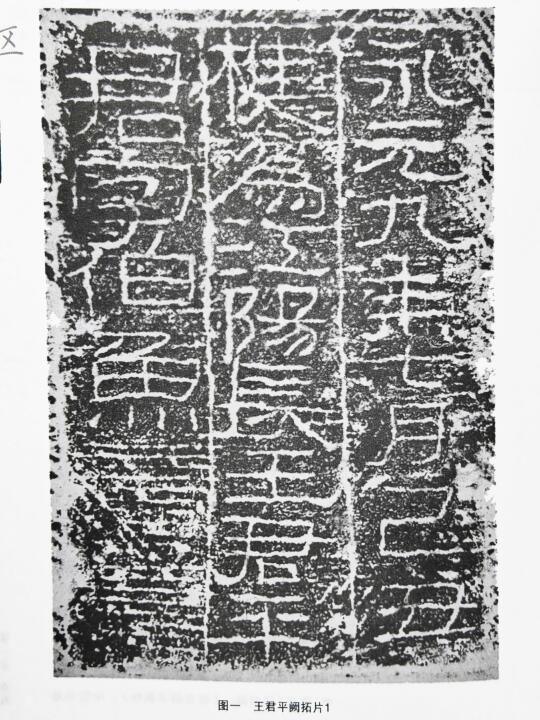 永元九年七月己丑
楗為江陽長王君平
君字伯魚
图一 王君平阙拓片1